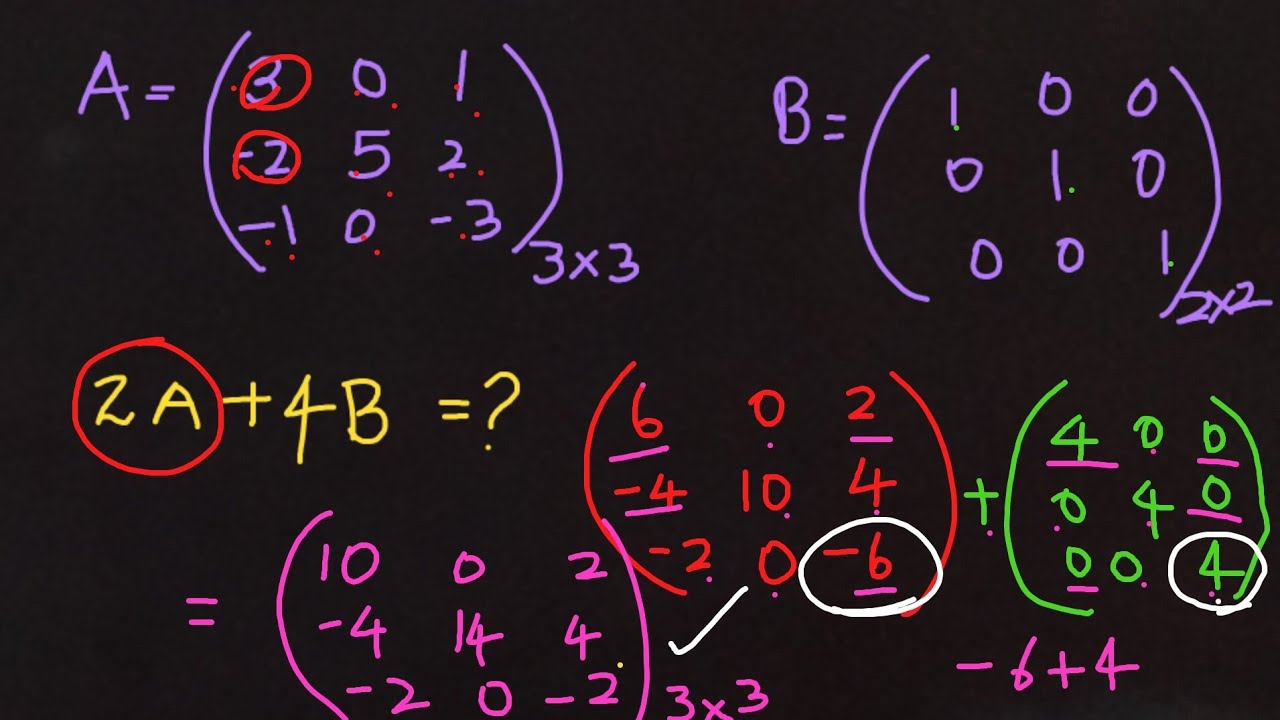 A = ( 3 0 1
-2 5 2
-1 0 -3 ) 3×3
B = ( 1 0 0
0 1 0
0 0 1 ) 2×2
2A + 4B = ?
( 6 0 2
-4 10 4
-2 0 -6 )
+ ( 4 0 0
0 4 0
0 0 4 )
= ( 10 0 2
-4 14 4
-2 0 -2 ) 3×3
-6+4